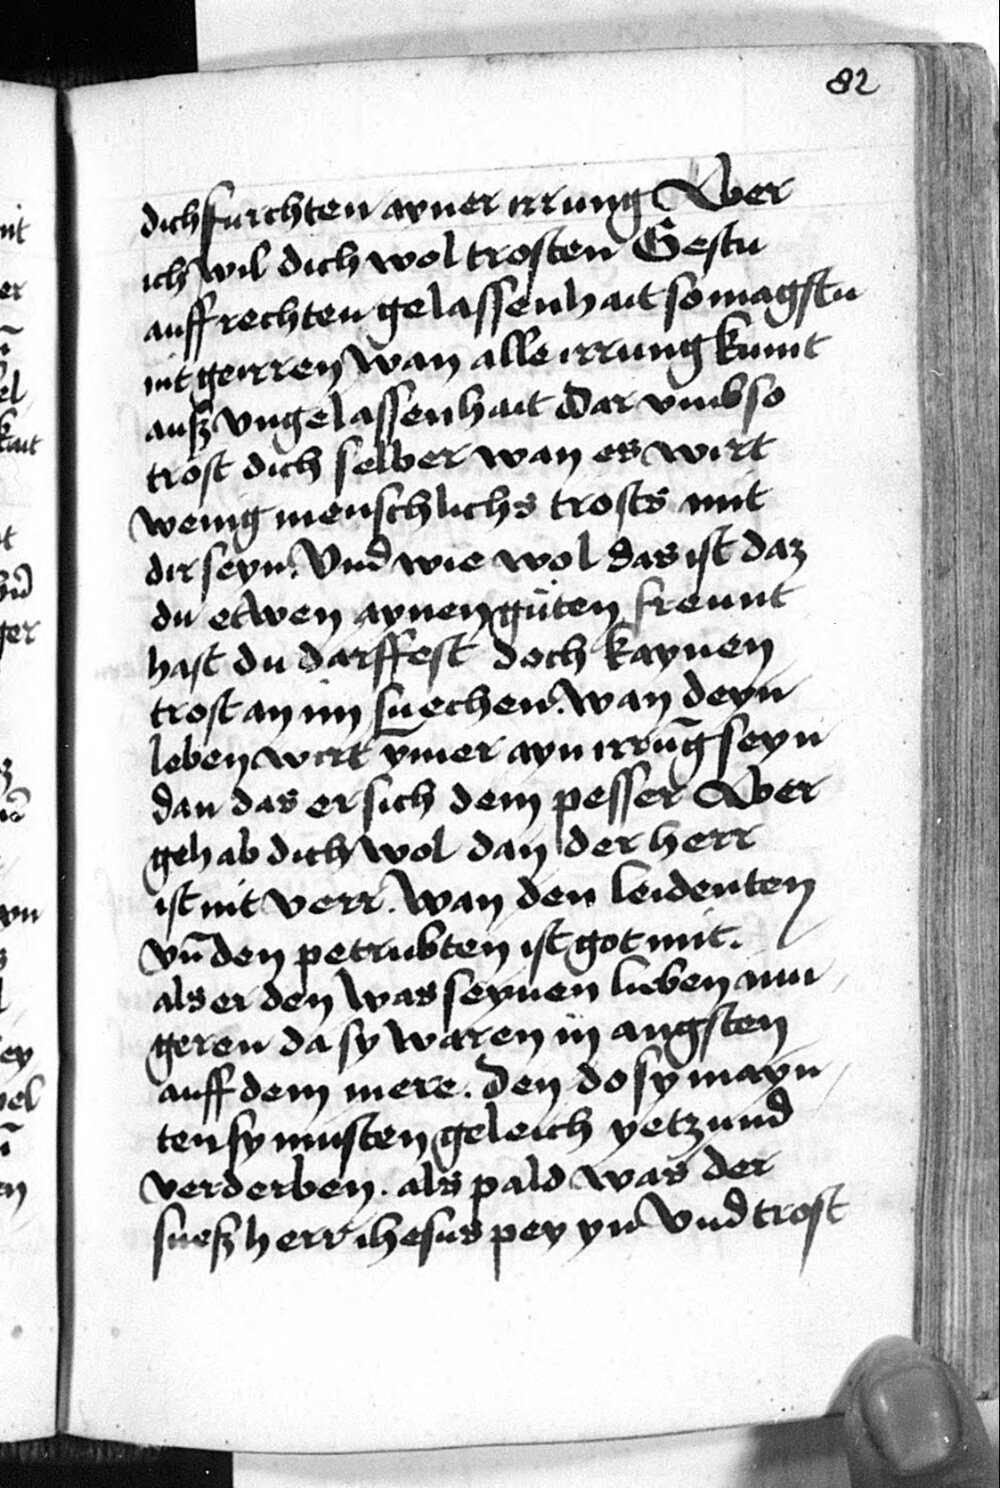 82
dich furchten ayner irrung Aber
ich wil dich wol trosten Gestu
auff rechten gelassenhait so magstu
nit geirren wan alle irrung kumt
auß vngelassenhait Dar vmb so
trost dich selber wan es wirt
wenig menschlichs trosts mit
dir seyn. Vnd wie wol das ist daz
du etwen aynen güten freunt
hast du darffest doch kaynen
trost an im suechen. wan deyn
leben wirt ymer ayn irrūg seyn
dan das er sich dem pesser Aber
gehab dich wol dan der herr
ist nit verr. wan den leidenten
vn̄ den petrubten ist got mit.
als er den was seynen lieben iun
geren da sy waren in angsten
auff dem mere. Den do sy mayn
ten sy musten geleich yetzund
verderben. als pald was der
sueß herr ihesus pey yn Vnd trost